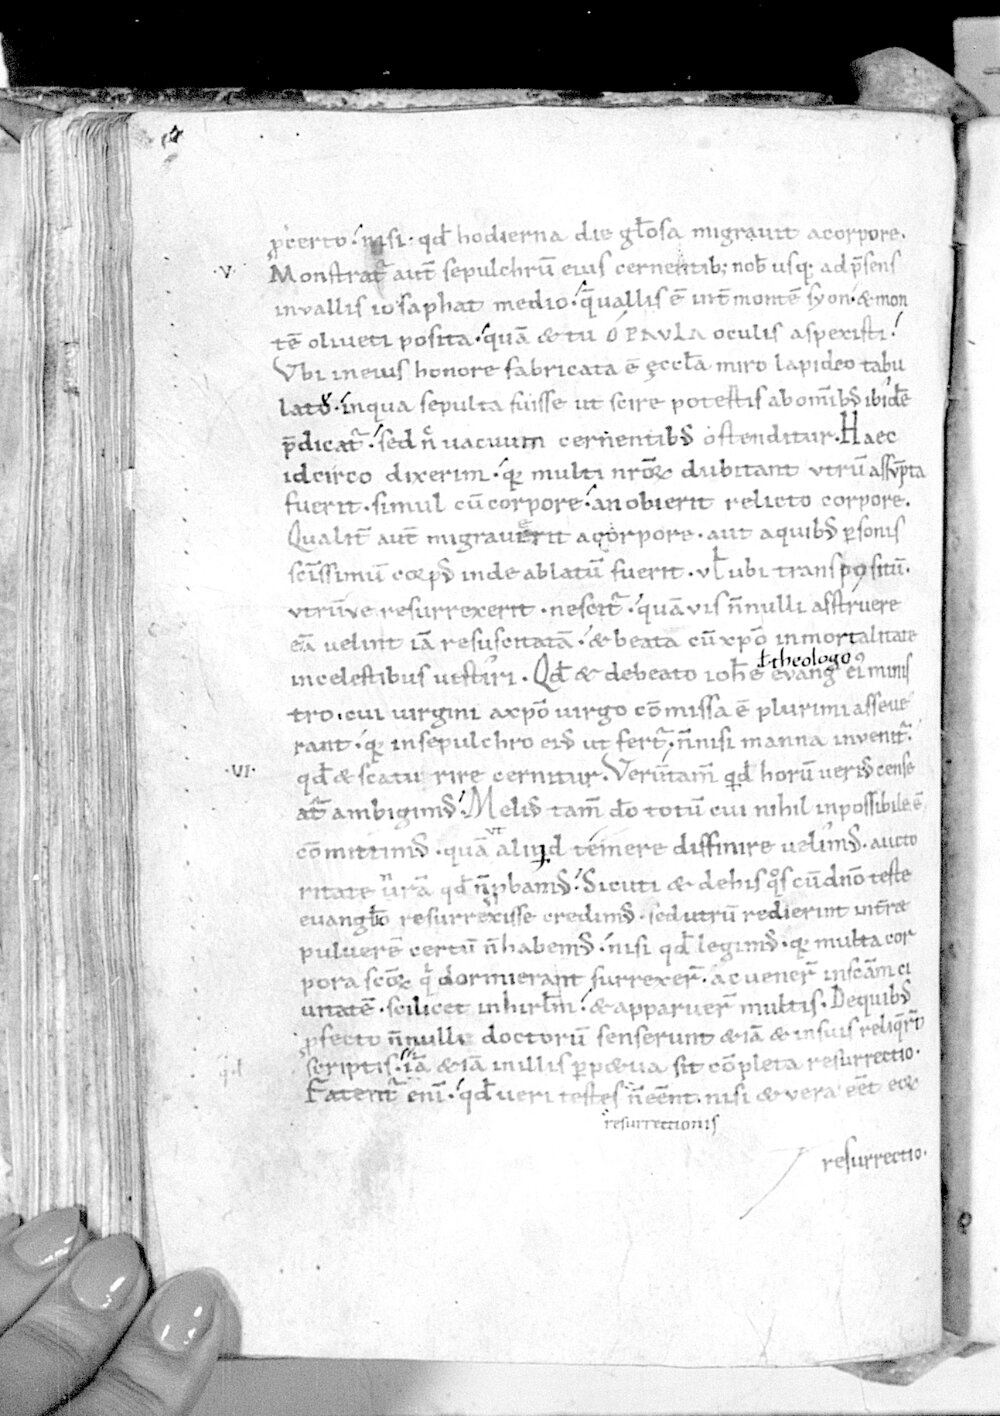 p̄certo. nisi. qđ hodierna die gl̄osa migrauit acorpore.
.V. Monstrat̄ aut̄ sepulchrū eius cernentib; nob̄ usq; adp̄sens
inuallis iosaphat medio. q̄uallis ē int̄ montē syon. & mon
tē oliueti posita. quā & tu ó PAVLA oculis aspexisti.
Vbi ineius honore fabricata ē ęccl̄a miro lapideo tabu
lato. inqua sepulta fuisse ut scire potestis abom̄ibꝰ ibidē
p̄dicat̄. sed n̄c uacuum cernentibꝰ ostenditur. Haec
idcirco dixerim. q; multi nr̄oꝝ dubitant vtrū assūpta
fuerit. simul cū corpore. an obierit relicto corpore.
Qualit̄ aut̄ migrauerit acorpore. aut aquibꝰ p̱sonis
sc̄issimū corpꝰ inde ablatū fuerit. vł ubi transpositū.
vtrūue resurrexerit. nescit̄. quāuis n̄nulli astruere
eā uelint iā resuscitatā. & beata cū xp̄o inmortalitate
incelestibus uestiri. Qđ & debeato ioh̄e euanḡ eiꝰ minis
ł theologo
tro. cui uirgini axp̄o uirgo cōmissa ē plurimi asseue
rant. q; insepulchro eiꝰ ut fert̄. n̄nisi manna inuenit̄.
.VI. qđ & scaturire cernitur. Verūtam̄ quid horū ueriꝰ cense
at̄ ambigimꝰ. Meliꝰ tam̄ dō totū cui nihil inpossibile ē
cōmittimꝰ. quā ut aliquid temere diffinire uelimꝰ. aucto
ritate nr̄a qđ n̄ p̱bamꝰ. Sicuti & dehis qos cū dn̄o teste
euanglō resurrexisse credimꝰ. sed utrū redierint int̄ræ
puluerē certū n̄ habemꝰ. nisi qđ legimꝰ. q; multa cor
pora sc̄oꝝ q̄ dormierant surrexer̄. ac uener̄ insc̄am ci
uitatē. scilicet inhirlm̄. & apparuer̄ multis. Dequibꝰ
p̱fecto n̄nulli doctorū senserunt &iā & insuis reliq̄rt̄
scriptis. iā &iā inillis p̱p&ua sit cōpleta resurrectio.
Fatent̄ enī. qđ ueri testes n̄ eēnt. nisi & vera eēt eoꝝ
resurrectionis
resurrectio.